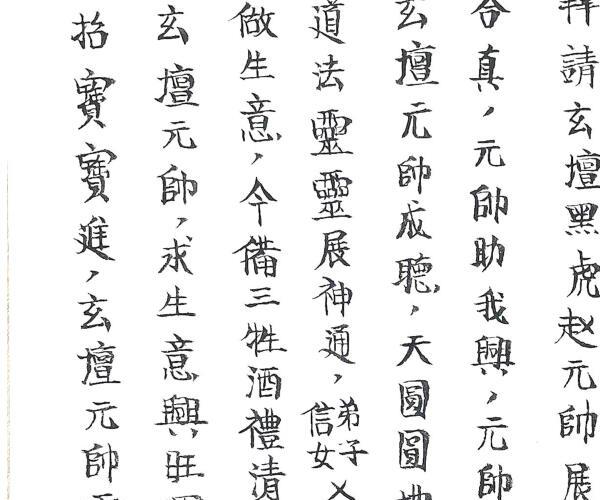 拜請玄壇黑虎赵元帥展
合真，元帥助我興，元帥
玄壇元帥成聽，天圓圓
道法靈靈展神通，弟子信女
做生意，今備三牲酒禮清
玄壇元帥，求生意興旺
招寶寶進，玄壇元帥